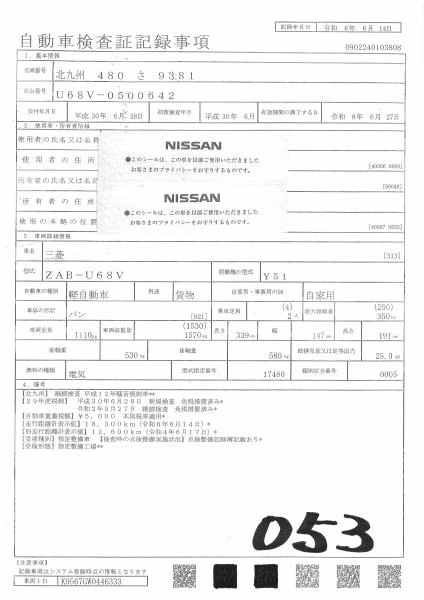 記録年月日 令和 6年 6月 14日
自動車検査証記録事項
0902240103808
1. 基本情報
車両番号 北九州 480 さ 9381
車台番号 U68V-0500642
交付年月日 平成 30年 6月 28日 初度検査年月 平成 30年 6月 有効期間の満了する日 令和 8年 6月 27日
2. 使用者・所有者情報
使用者の氏名又は名称
使用者の住所
[40006 0669]
所有者の氏名又は名称
[90048]
所有者の住所
使用の本拠の位置
[40007 0520]
NISSAN
●このシールは、この車を以前ご使用いただきました
お客さまのプライバシーをお守りするものです。
NISSAN
●このシールは、この車を以前ご使用いただきました
お客さまのプライバシーをお守りするものです。
3. 車両詳細情報
車名 三菱 [313]
型式 ZAB-U68V 原動機の型式 Y51
自動車の種別 軽自動車 用途 貨物 自家用・事業用の別 自家用
車体の形状 バン [021] 乗車定員 (4) 2人 最大積載量 (250) 350kg
車両重量 1110kg 車両総重量 (1530) 1570kg 長さ 339cm 幅 147cm 高さ 191cm
前軸重 530kg 後軸重 580kg 総排気量又は定格出力 25.0kW
燃料の種類 電気 型式指定番号 17480 類別区分番号 0005
4. 備考
【北九州】 継続検査 平成12年騒音規制車**
【29年度税制】 平成30年6月28日 新規検査 免税措置済み*
令和2年5月27日 継続検査 免税措置済み*
【自動車重量税額】￥5,000 本則税率適用*
【走行距離計表示値】18,300km (令和6年6月14日)*
【旧走行距離計表示値】12,600km (令和4年6月17日)*
【受検種別】指定整備車 【検査時の点検整備実施状況】点検整備記録簿記載あり*
【受検形態】指定整備工場**
053
【注意事項】
記録事項はシステム登録時点の情報となります
車両ID K9567GW0446333